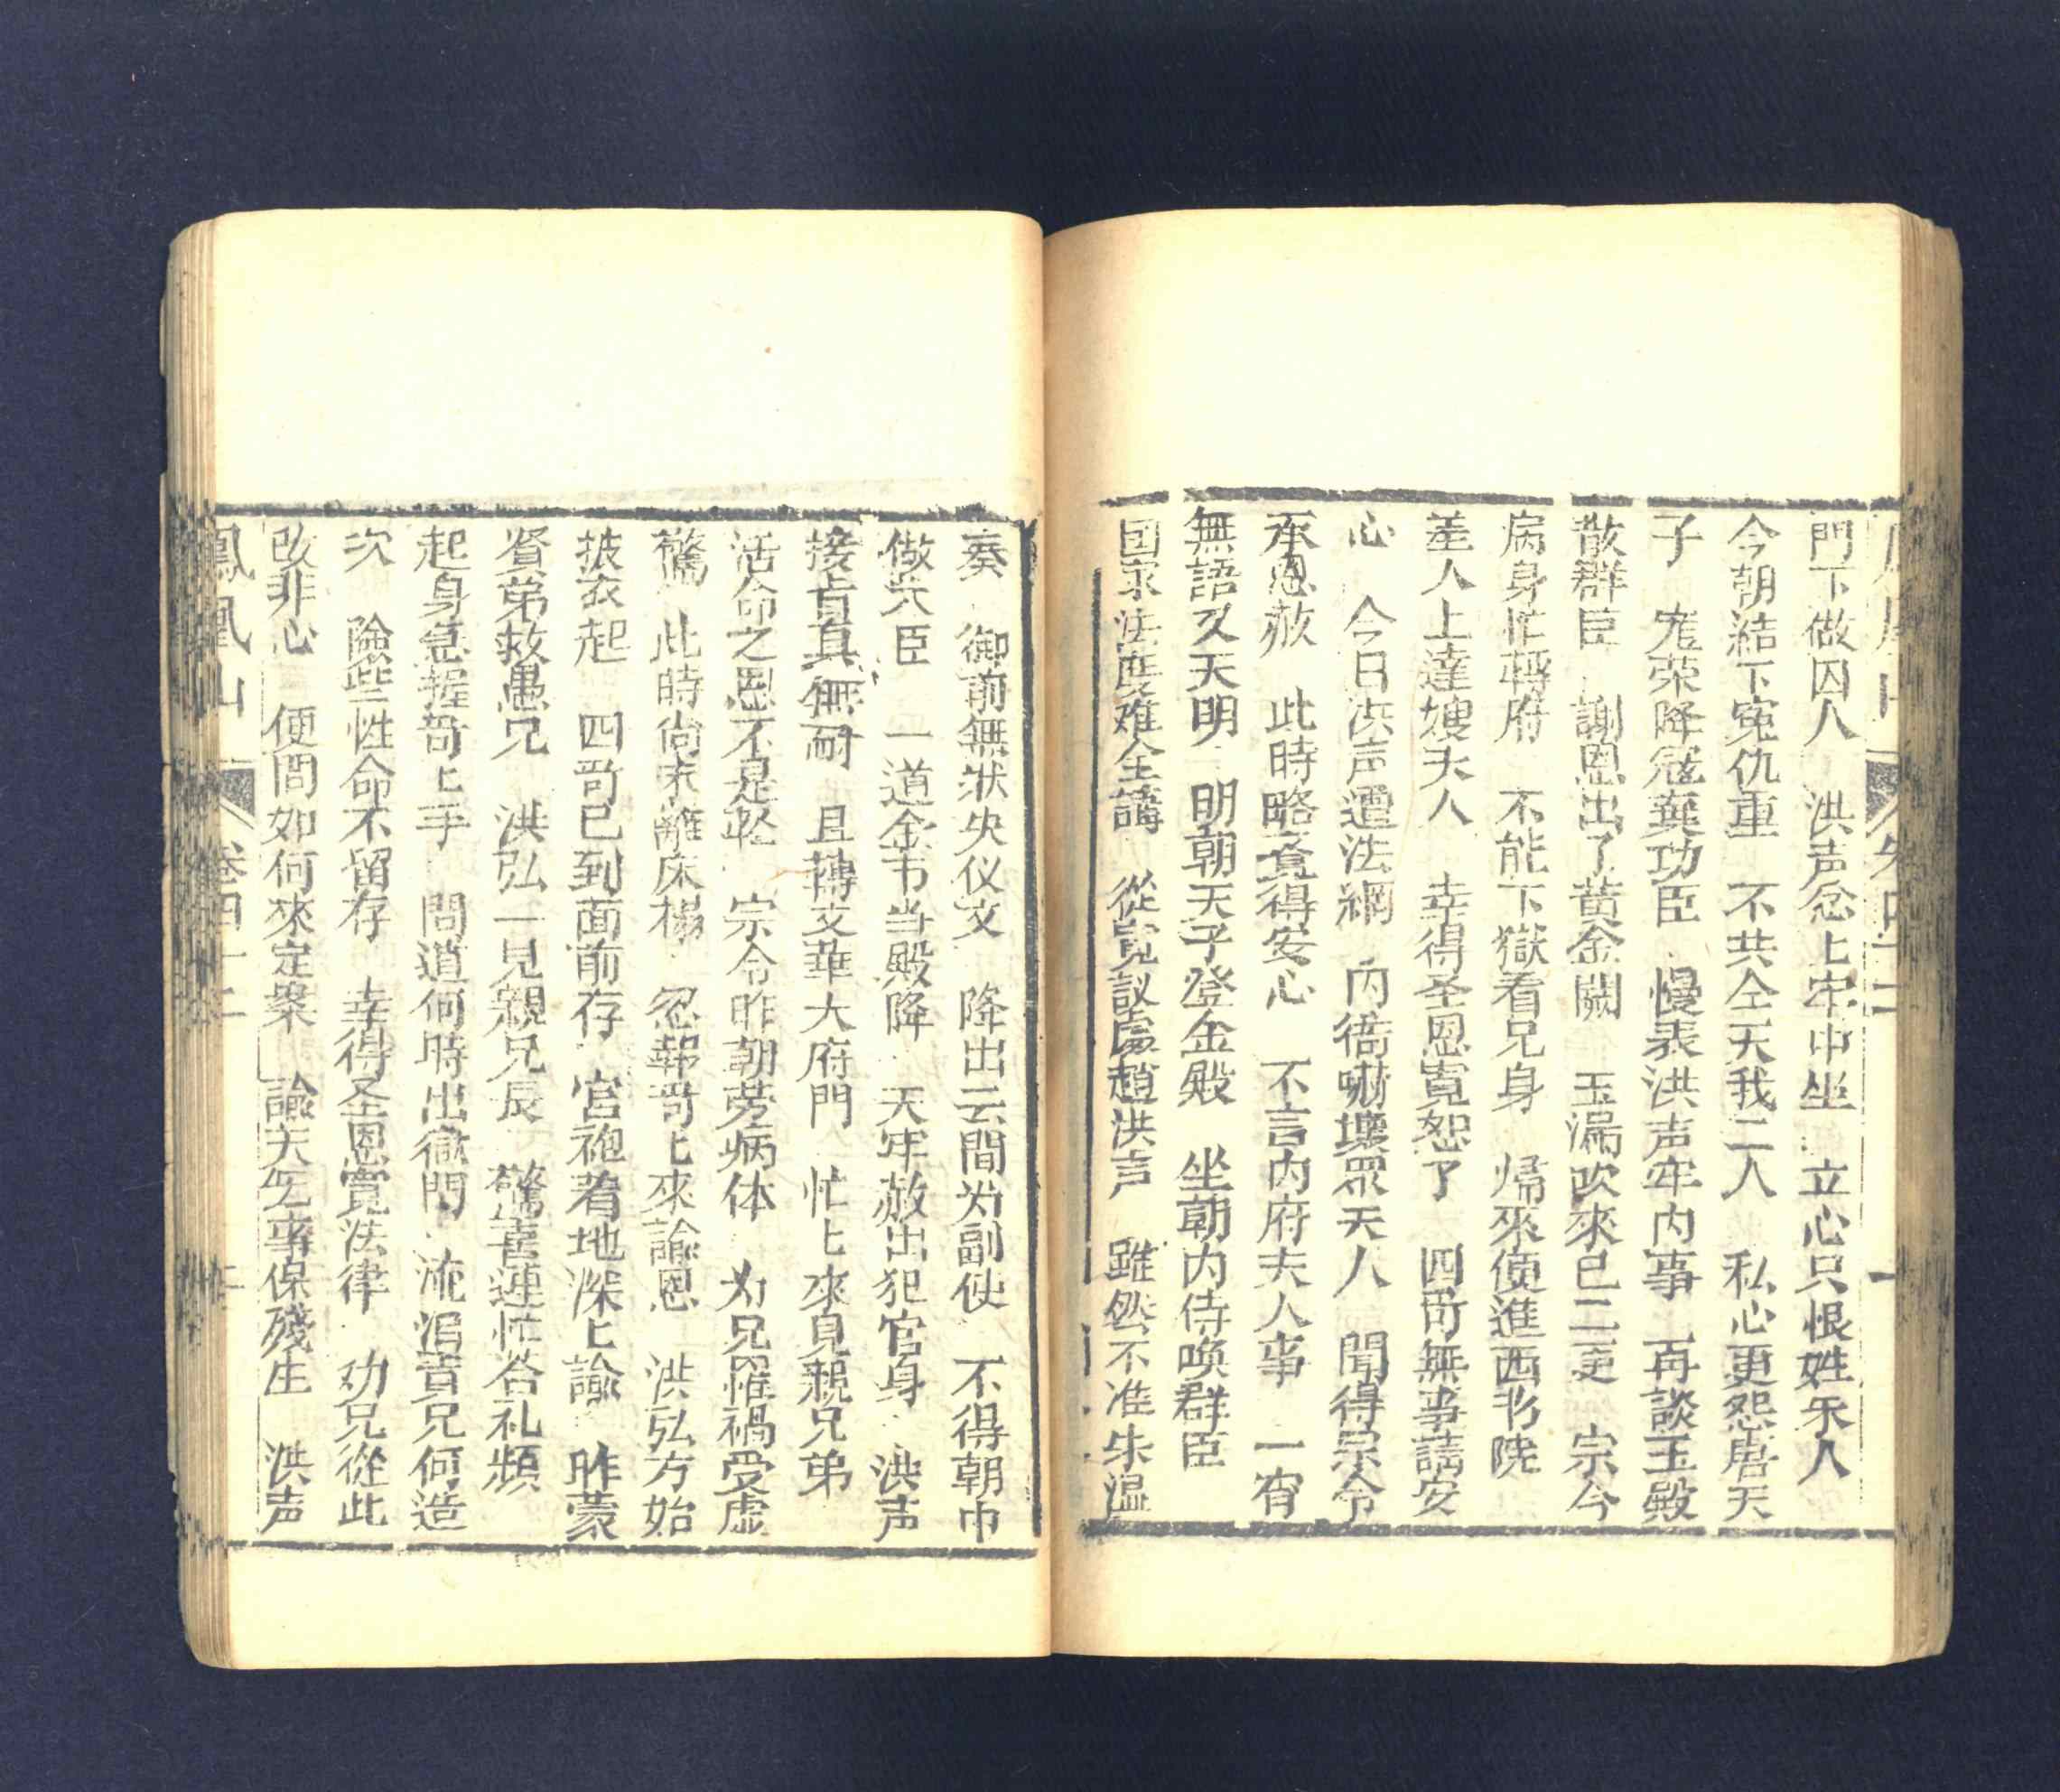 門下做囚人　洪声念上牢中坐　立心只恨姓朱人
今朝結下寃仇重　不共仝天我二人　私心更怨唐天
子　寵荣降寇弃功臣　慢表洪声牢内事　再談玉殿
散群臣　謝恩出了黄金闕　玉漏吹來已二更　宗令
病身忙轉府　不能下獄看兄身　帰來便進西书院
差人上達嫂夫人　幸得圣恩寬恕了　四哥無事請安
心　今日洪声遭法綱　内衙嚇壞眾夫人　聞得宗令
承恩赦　此時略竟得安心　不言内府夫人事　一宵
無語又天明　明朝天子登金殿　坐朝内侍唤群臣
国家法度难全講　從寬議處趙洪声　雖然不准朱温
奏　御前無狀失仪文　降出云間为副使　不得朝中
做大臣　一道金书当殿降　天牢赦出犯官身　洪声
接旨真無耐　且轉文華大府門　忙上來見親兄弟
活命之恩不是輕　宗令昨朝劳病体　为兄罹禍受虚
驚　此時尚未離床榻　忽報哥上來謝恩　洪弘方始
披衣起　四哥已到面前存　官袍着地深上謝　昨蒙
賢弟救愚兄　洪弘一見親兄長　驚喜連忙答礼頻
起身急握哥上手　問道何時出獄門　流涓責兄何造
次　險些性命不留存　幸得圣恩寬法律　劝兄從此
改非心　便問如何來定案　謝天无事保殘生　洪声
鳳凰山　卷四十二